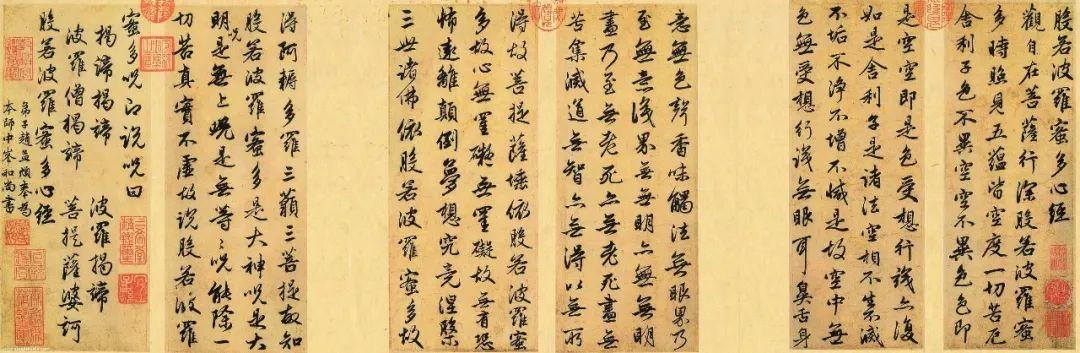 般若波羅蜜多心經
觀自在菩薩行深般若波羅蜜
多時照見五蘊皆空度一切苦厄
舍利子色不異空空不異色色即
是空空即是色受想行識亦復
如是舍利子是諸法空相不生滅
不垢不淨不增不減是故空中無
色無受想行識無眼耳鼻舌身
意無色聲香味觸法無眼界乃
至無意識界無無明亦無無明
盡乃至無老死亦無老死盡無
苦集滅道無智亦無得以無所
得故菩提薩埵依般若波羅蜜
多故心無罣礙無罣礙故無有恐
怖遠離顛倒夢想究竟涅槃
三世諸佛依般若波羅蜜多故
得阿耨多羅三藐三菩提故知
般若波羅蜜多是大神呪是大
明呪是無上呪是無等〻呪能除一
切苦真實不虛故說般若波羅
蜜多呪即說呪曰
揭諦揭諦 波羅揭諦
波羅僧揭諦 菩提薩婆訶
般若波羅蜜多心經
弟子趙孟頫奉為
本師中峯和尚書